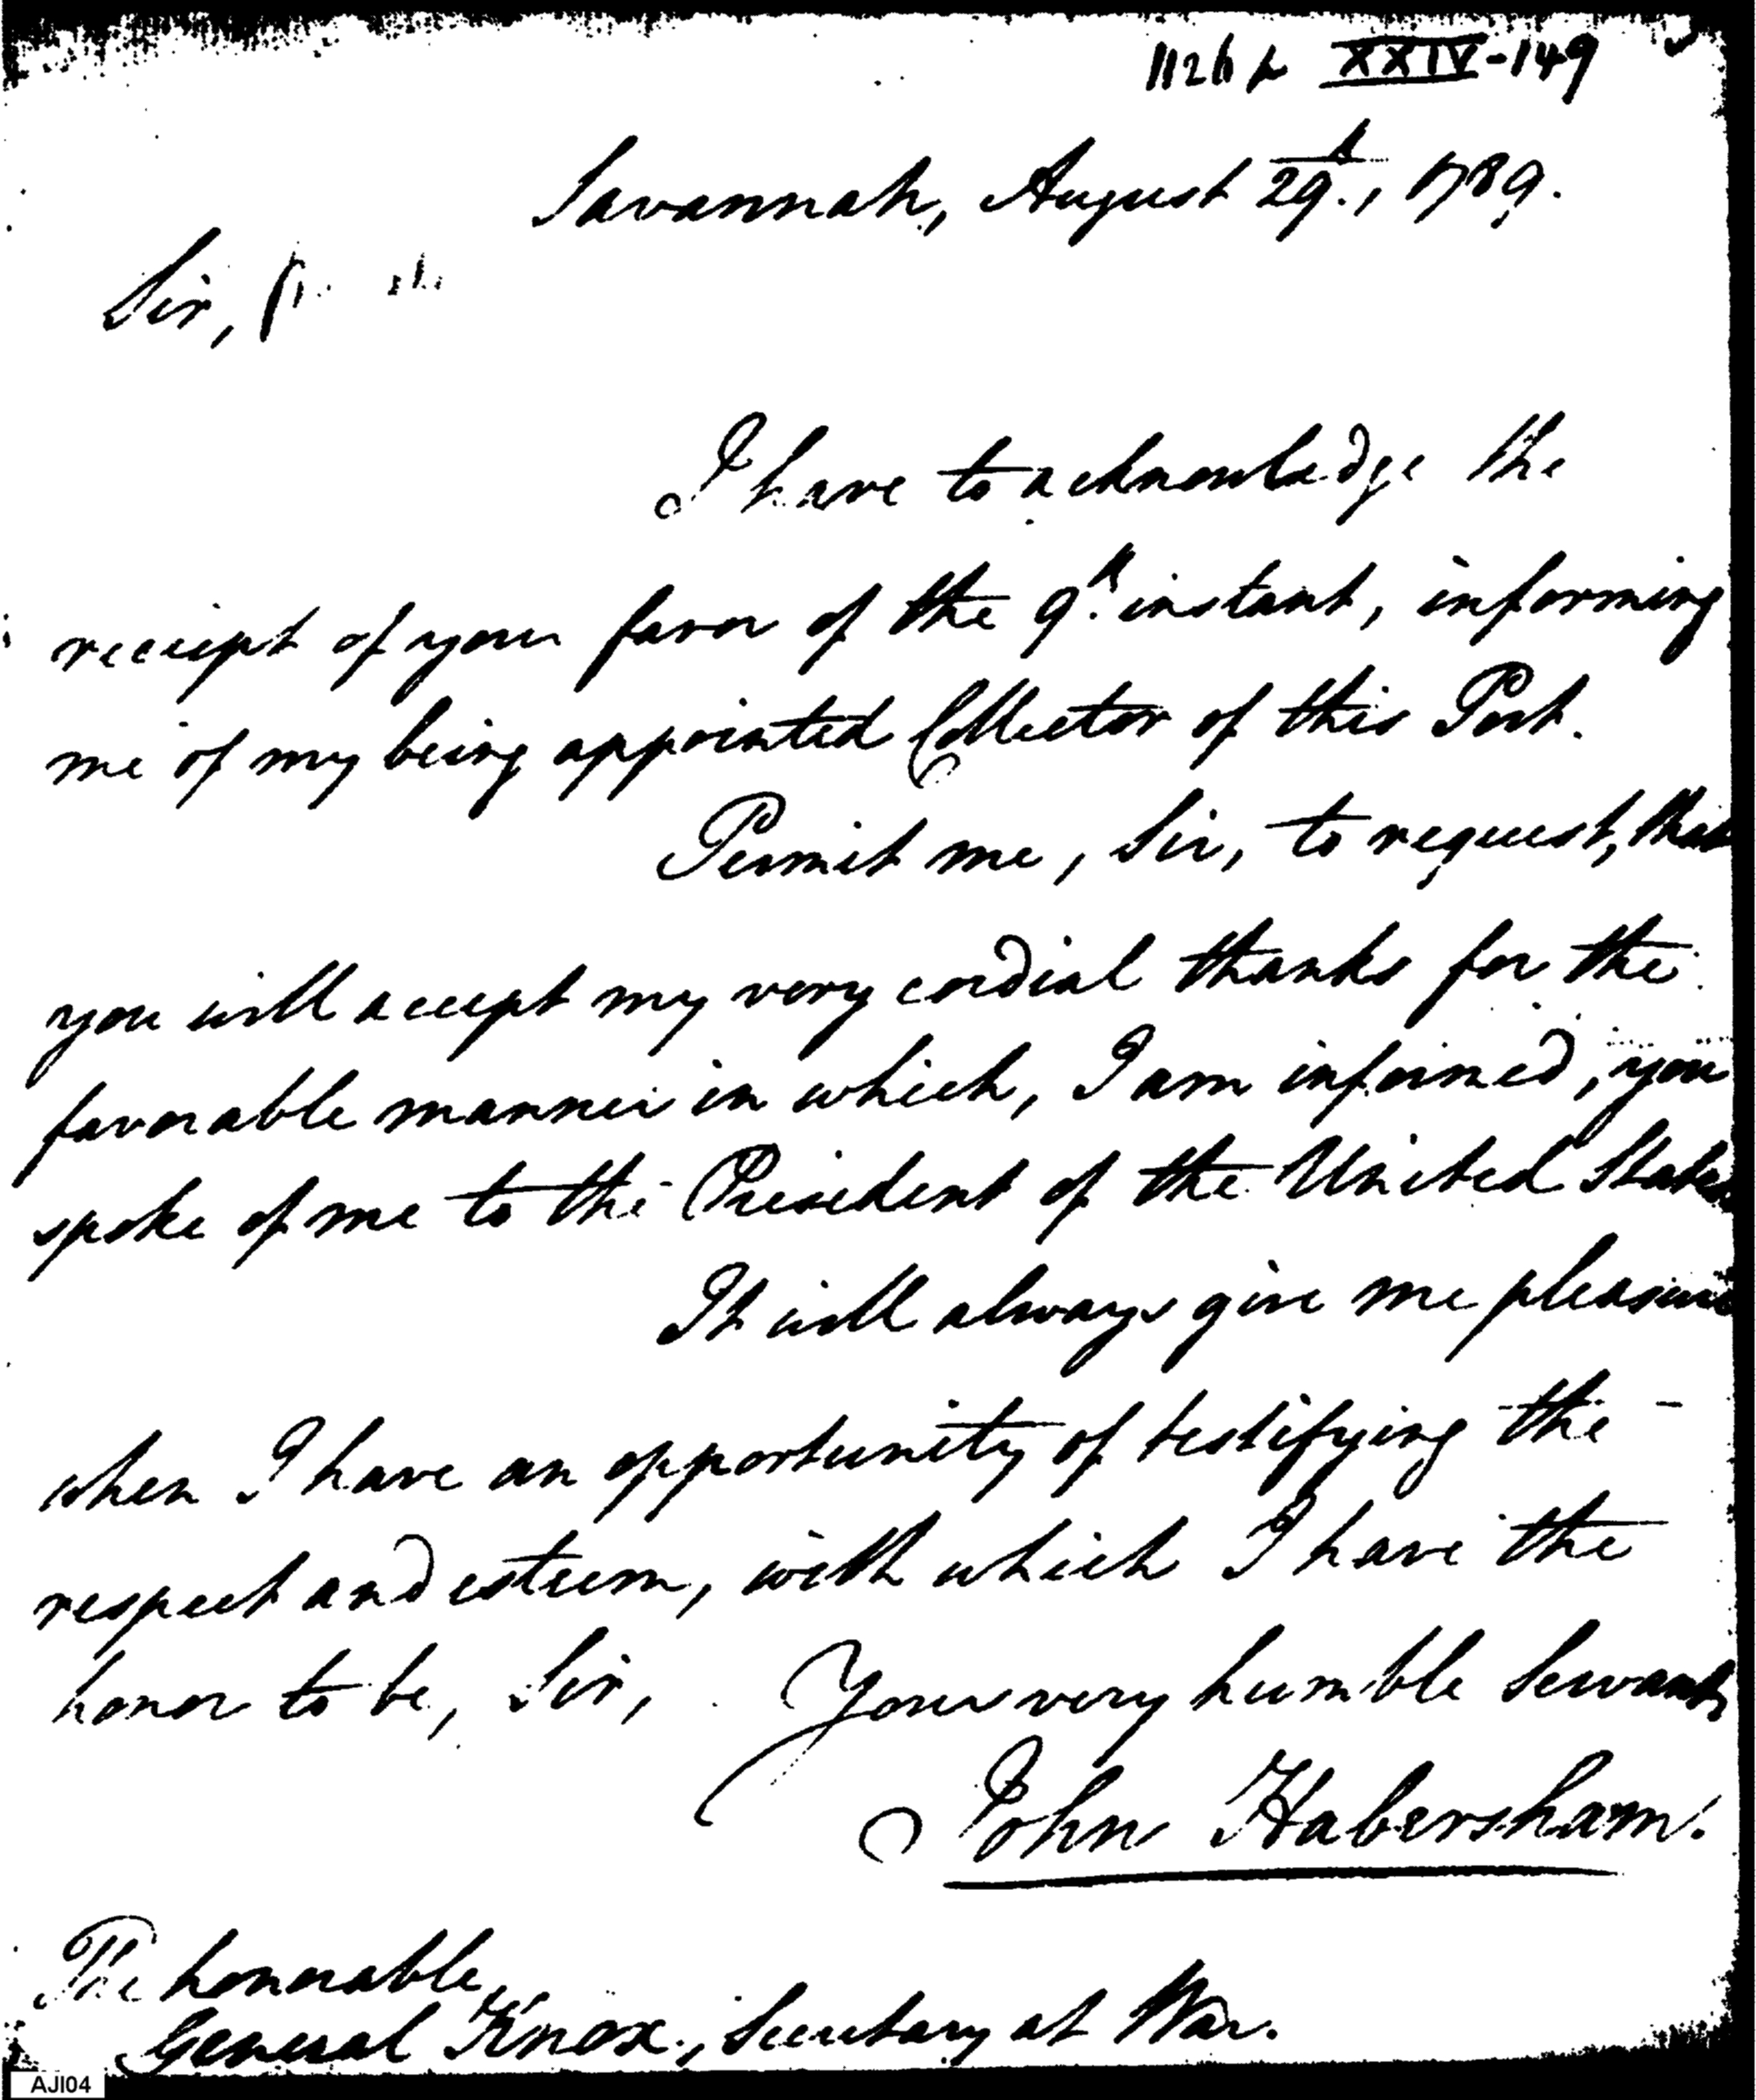 XXIV-149
Savannah, August 29th, 1789.
Sir,
I have to acknowledge the
receipt of your favor of the 9th instant, informing
me of my being appointed Collector of this Port.
Permit me, Sir, to request, that
you will accept my very cordial thanks for the
favorable manner in which, I am informed, you
spoke of me to the President of the United States
It will always give me pleasure
when I have an opportunity of testifying the -
respect and esteem, with which I have the
honor to be, Sir, Your very humble Servant,
John Habersham.
The honorable
General Knox, Secretary at War.
AJI04